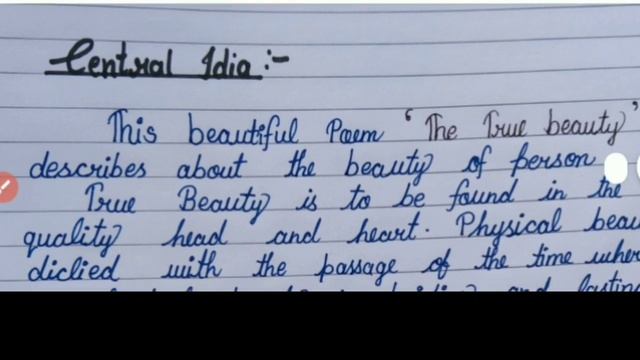 Central Idia :-
This beautiful Poem ‘The True beauty’
describes about the beauty of person
True Beauty is to be found in the
quality head and heart. Physical beau
diclied with the passage of the time wher
and lasting